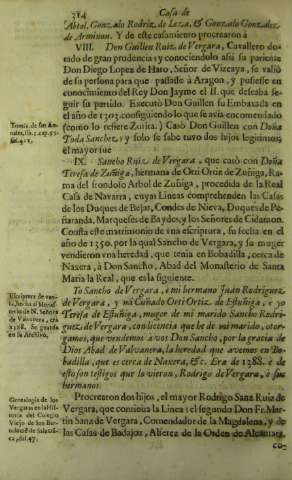 314 Casa de
Abtol. Gonzalo Rodriz. de Loza, & Gonzalo Gonzalez
de Arminon. Y de este casamiento procrearon à
VIII. Don Guillen Ruiz de Vergara, Cavallero do-
tado de gran prudencia: y conociendolo assi su pariente
Don Diego Lopez de Haro, Señor de Vizcaya, se valiò
de su persona para que passasse à Aragon, y pusiesse en
conocimiento del Rey Don Jayme el II. que deseaba se-
guir su partido. Executò Don Guillen su Embaxada en
el año de 1303. consiguiendo lo que se avia encomendado
(como lo refiere Zurita.) Casò Don Guillen con Doña
Toda Sanchez, y solo se sabe tuvo dos hijos legitimos,
el mayor fue
IX. Sancho Ruiz de Vergara, que casò con Doña
Teresa de Zuñiga, hermana de Orti Ortiz de Zuñiga, Ra-
ma del frondoso Arbol de Zuñiga, procedida de la Real
Casa de Navarra, cuyas Lineas comprehenden las Casas
de los Duques de Bejar, Condes de Nieva, Duques de Pe-
ñaranda, Marqueses de Baydes, y los Señores de Cidamon.
Consta este matrimonio de vna escriptura, su fecha en el
año de 1350. por la qual Sancho de Vergara, y su muger
vendieron vna heredad, que tenia en Bobadilla, cerca de
Naxera, à Don Sancho, Abad del Monasterio de Santa
Maria la Real, que es la siguiente.
Yo Sancho de Vergara, è mi hermano Juan Rodriguez
de Vergara, y mi Cuñado Orti Ortiz de Estuñiga, è yo
Teresa de Estuñiga, muger de mi marido Sancho Rodri-
guez de Vergara, con licencia que he de mi marido, otor-
gamos, que vendemos à vos Don Sancho, por la gracia de
Dios Abad de Valvanera, la heredad que avemos en Bo-
badilla, que es cerca de Naxera, &c. Era de 1388. è de
esto son testigos que lo vieron, Rodrigo de Vergara, è sus
hermanos.
Procrearon dos hijos, el mayor Rodrigo Sanz Ruiz de
Vergara, que continua la Linea: el segundo Don Fr. Mar-
tin Sanz de Vergara, Comendador de la Magdalena, y de
las Casas de Badajoz, Alferez de la Orden de Alcantara,
co-
Zurita de sus An-
nales, lib.5. cap.57.
fol. 421.
Escriptura de ven-
ta, hecha al Monas-
terio de N. Señora
de Valvanera, era
1388. Se guarda en
su Archivo.
Genealogia de los
Vergaras en la His-
toria del Colegio
Viejo de San Bar-
tolomè de Salaman-
ca, fol. 47.